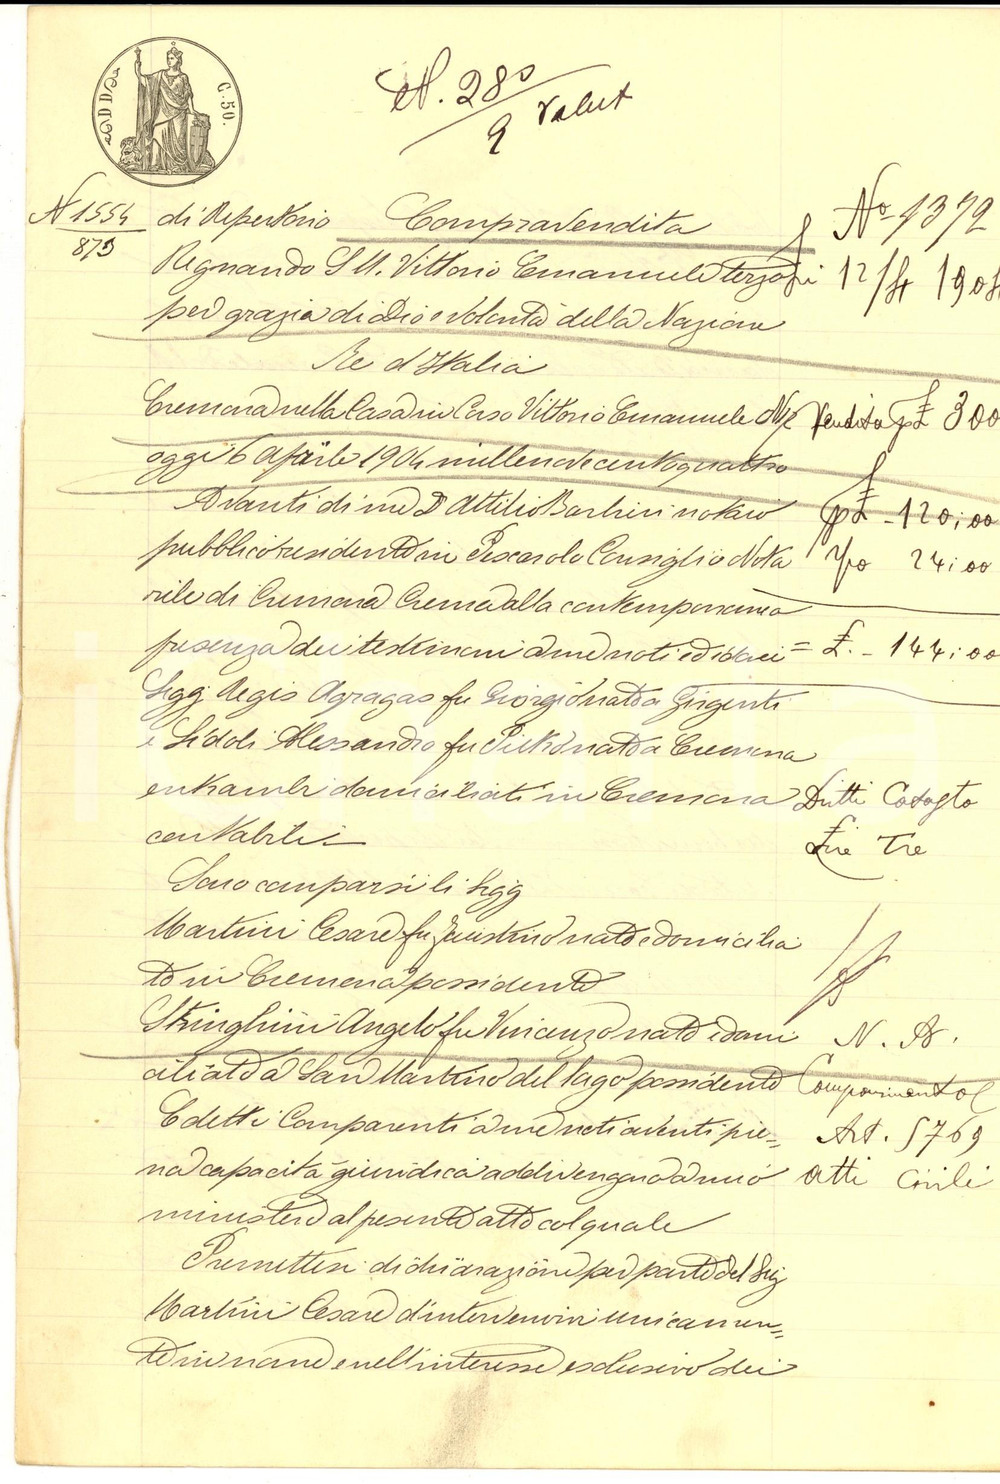 C. 50.
N. 280
9 Valut
N 1554
873
di Repertorio Compravendita
No 1372
Regnando S. M. Vittorio Emanuele terzo
12/4 1904
per grazia di Dio e volontà della Nazione
Re d'Italia
Cremona nella Casa in Corso Vittorio Emanuele N. 2
Vendita p £ 300
oggi 6 Aprile 1904 millenovecentoquattro
Avanti di me Dr Attilio Barbieri notaio
p £ - 120:00
pubblico residente in Pescarolo Consiglio Nota
24:00
rile di Cremona Crema alla contemporanea
presenza dei testimoni a me noti ed idonei
= £. - 144:00
Sigg Regis Agragas fu Giorgio nato a Girgenti
e Sidoli Alessandro fu Pietro nato a Cremona
entrambi domiciliati in Cremona
Dritti Catasto
contabili
Lire Tre
Sono comparsi li Sigg
Martini Cesare fu Faustino nato e domicilia
to in Cremona possidente
Stringhini Angelo fu Vincenzo nato e domi
N. B.
ciliato a San Martino del Lago possidente
Campionimento al
E detti Comparenti a me noti aventi pie=
Art. 5769
na capacità giuridica addivengono a mio
atti civili
ministero al presente atto col quale
Premettesi di dichiarazione per parte del Sig
Martini Cesare d'intervenire unicamen=
te in nome e nell'interesse esclusivo dei